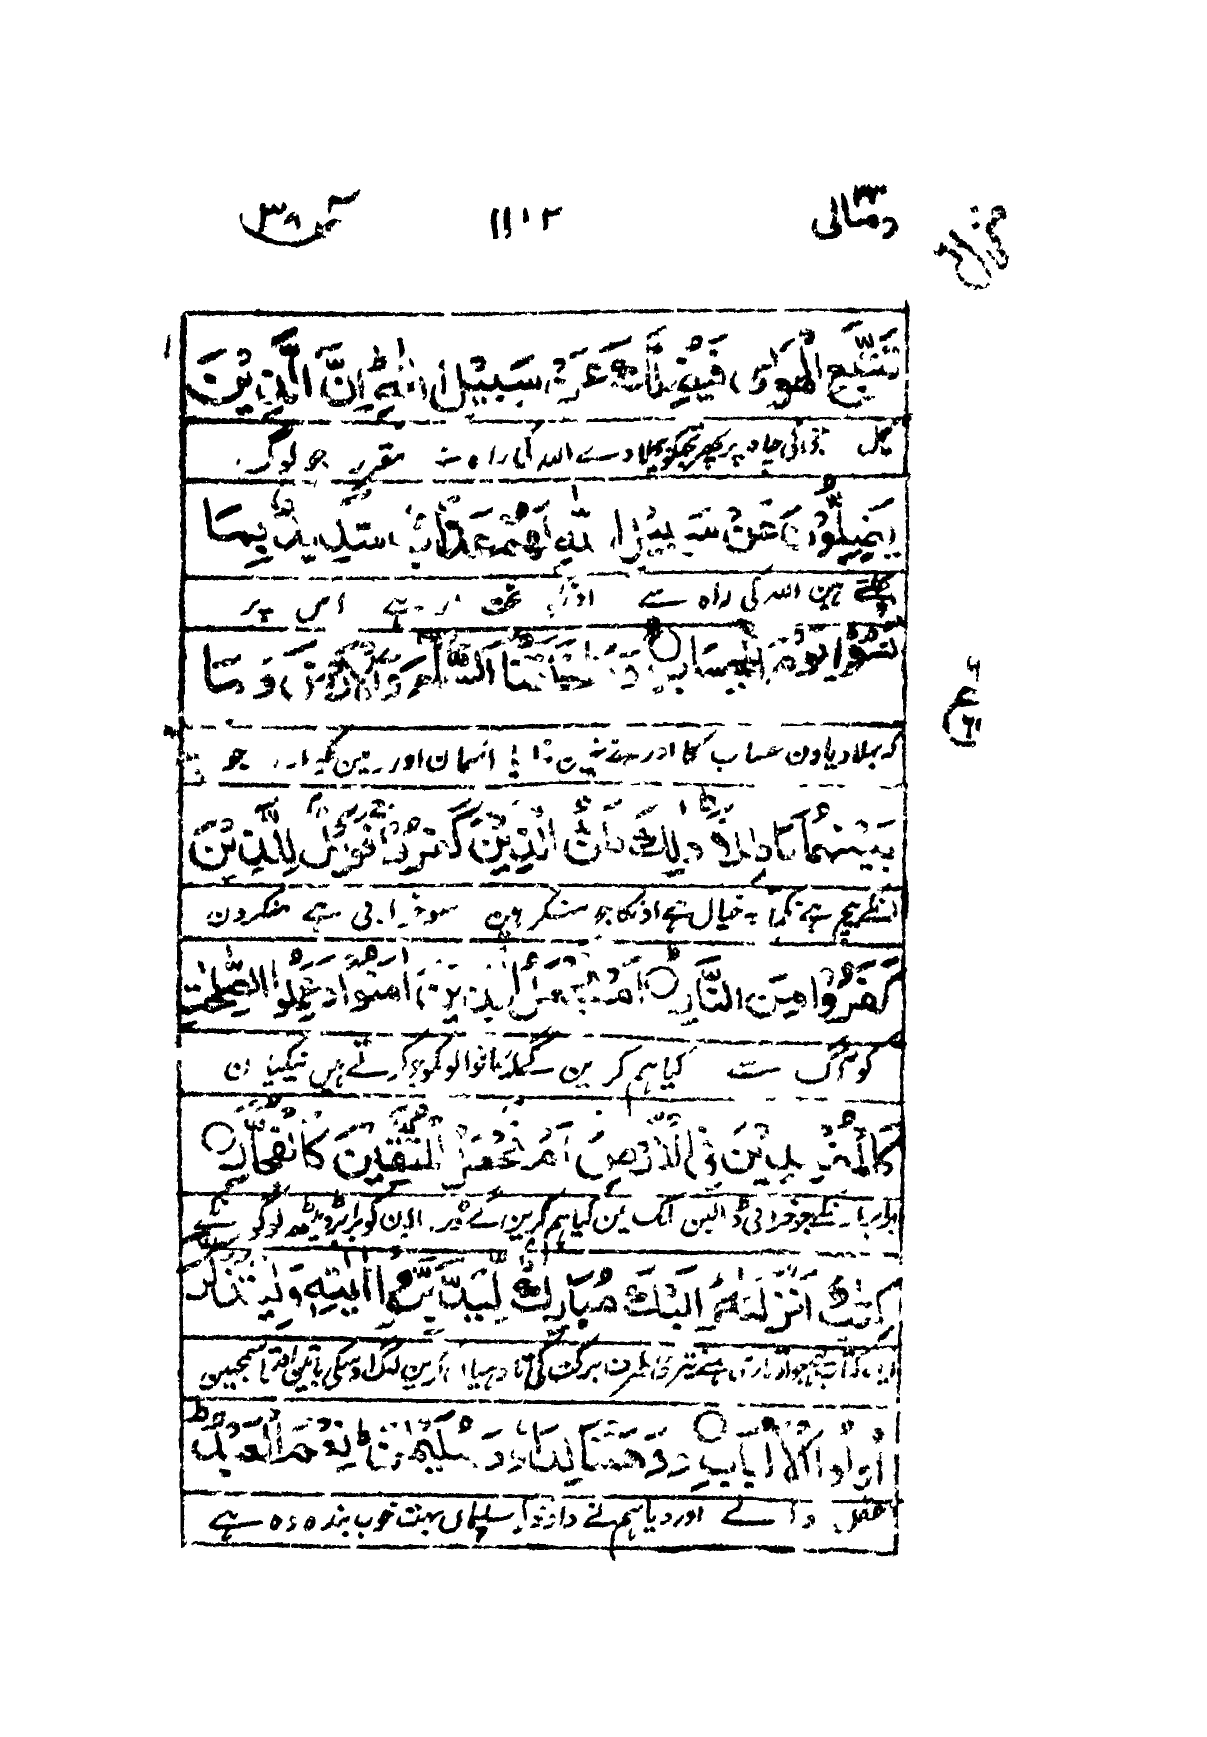 ومالی ٢٣ ١١٠٢ ص ٣٨
تَتَّبِعِ الْهَوٰى فَيُضِلَّكَ عَنْ سَبِيْلِ اللّٰهِ ط اِنَّ الَّذِيْنَ
چاہ پر پھر تجکو بھلا دے اللہ کی راہ سے مقرر جو لوگ
يَضِلُّوْنَ عَنْ سَبِيْلِ اللّٰهِ لَهُمْ عَذَابٌ شَدِيْدٌ بِمَا
ہین اللہ کی راہ سے اونکو سخت مار ہے اس پر
نَسُوْا يَوْمَ الْحِسَابِ ○ وَمَا خَلَقْنَا السَّمَآءَ وَالْاَرْضَ وَمَا
کہ بھلا دیا دن حساب کا اور ہمنے نہین بنایا آسمان اور زمین کو اور جو
بَيْنَهُمَا بَاطِلًا ط ذٰلِكَ ظَنُّ الَّذِيْنَ كَفَرُوْا ج فَوَيْلٌ لِّلَّذِيْنَ
انکے بیچ ہے نکما یہ خیال ہے اونکا جو منکر ہین سو خرابی ہے منکرون
كَفَرُوْا مِنَ النَّارِ ○ اَمْ نَجْعَلُ الَّذِيْنَ اٰمَنُوْا وَعَمِلُوا الصّٰلِحٰتِ
کو آگ سے کیا ہم کرین گے ایمان والونکو جو کرتے ہین نیکیان
كَالْمُفْسِدِيْنَ فِى الْاَرْضِ اَمْ نَجْعَلُ الْمُتَّقِيْنَ كَالْفُجَّارِ ○
برابر انکے جو خرابی ڈالین ملک مین کیا ہم کرین گے ڈر والون کو برابر ڈھیٹھ لوگو نکے
كِتٰبٌ اَنْزَلْنٰهُ اِلَيْكَ مُبٰرَكٌ لِّيَدَّبَّرُوْٓا اٰيٰتِهٖ وَلِيَتَذَكَّرَ
ایک کتاب ہے جو اوتاری ہمنے تیری طرف برکت کی تا دھیان کرین لوگ اوسکی باتین اور تا سمجھین
اُولُوا الْاَلْبَابِ ○ وَوَهَبْنَا لِدَاوٗدَ سُلَيْمٰنَ ط نِعْمَ الْعَبْدُ ط
عقل والے اور دیا ہم نے داؤد کو سلیمان بہت خوب بندہ وہ ہے